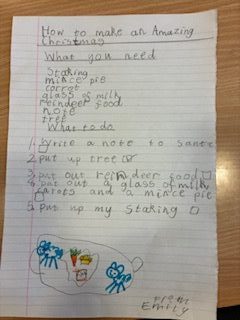 How to make an Amazing
Christmas
What you need
Staking
mince pie
corrot
glass of milk
reindeer food
note
tree
What to do
1. Write a note to Sante
2. put up tree
3. put out reindeer food
4. put out a glass of milk
carots and a mince pie
5. put up my staking
From
Emily